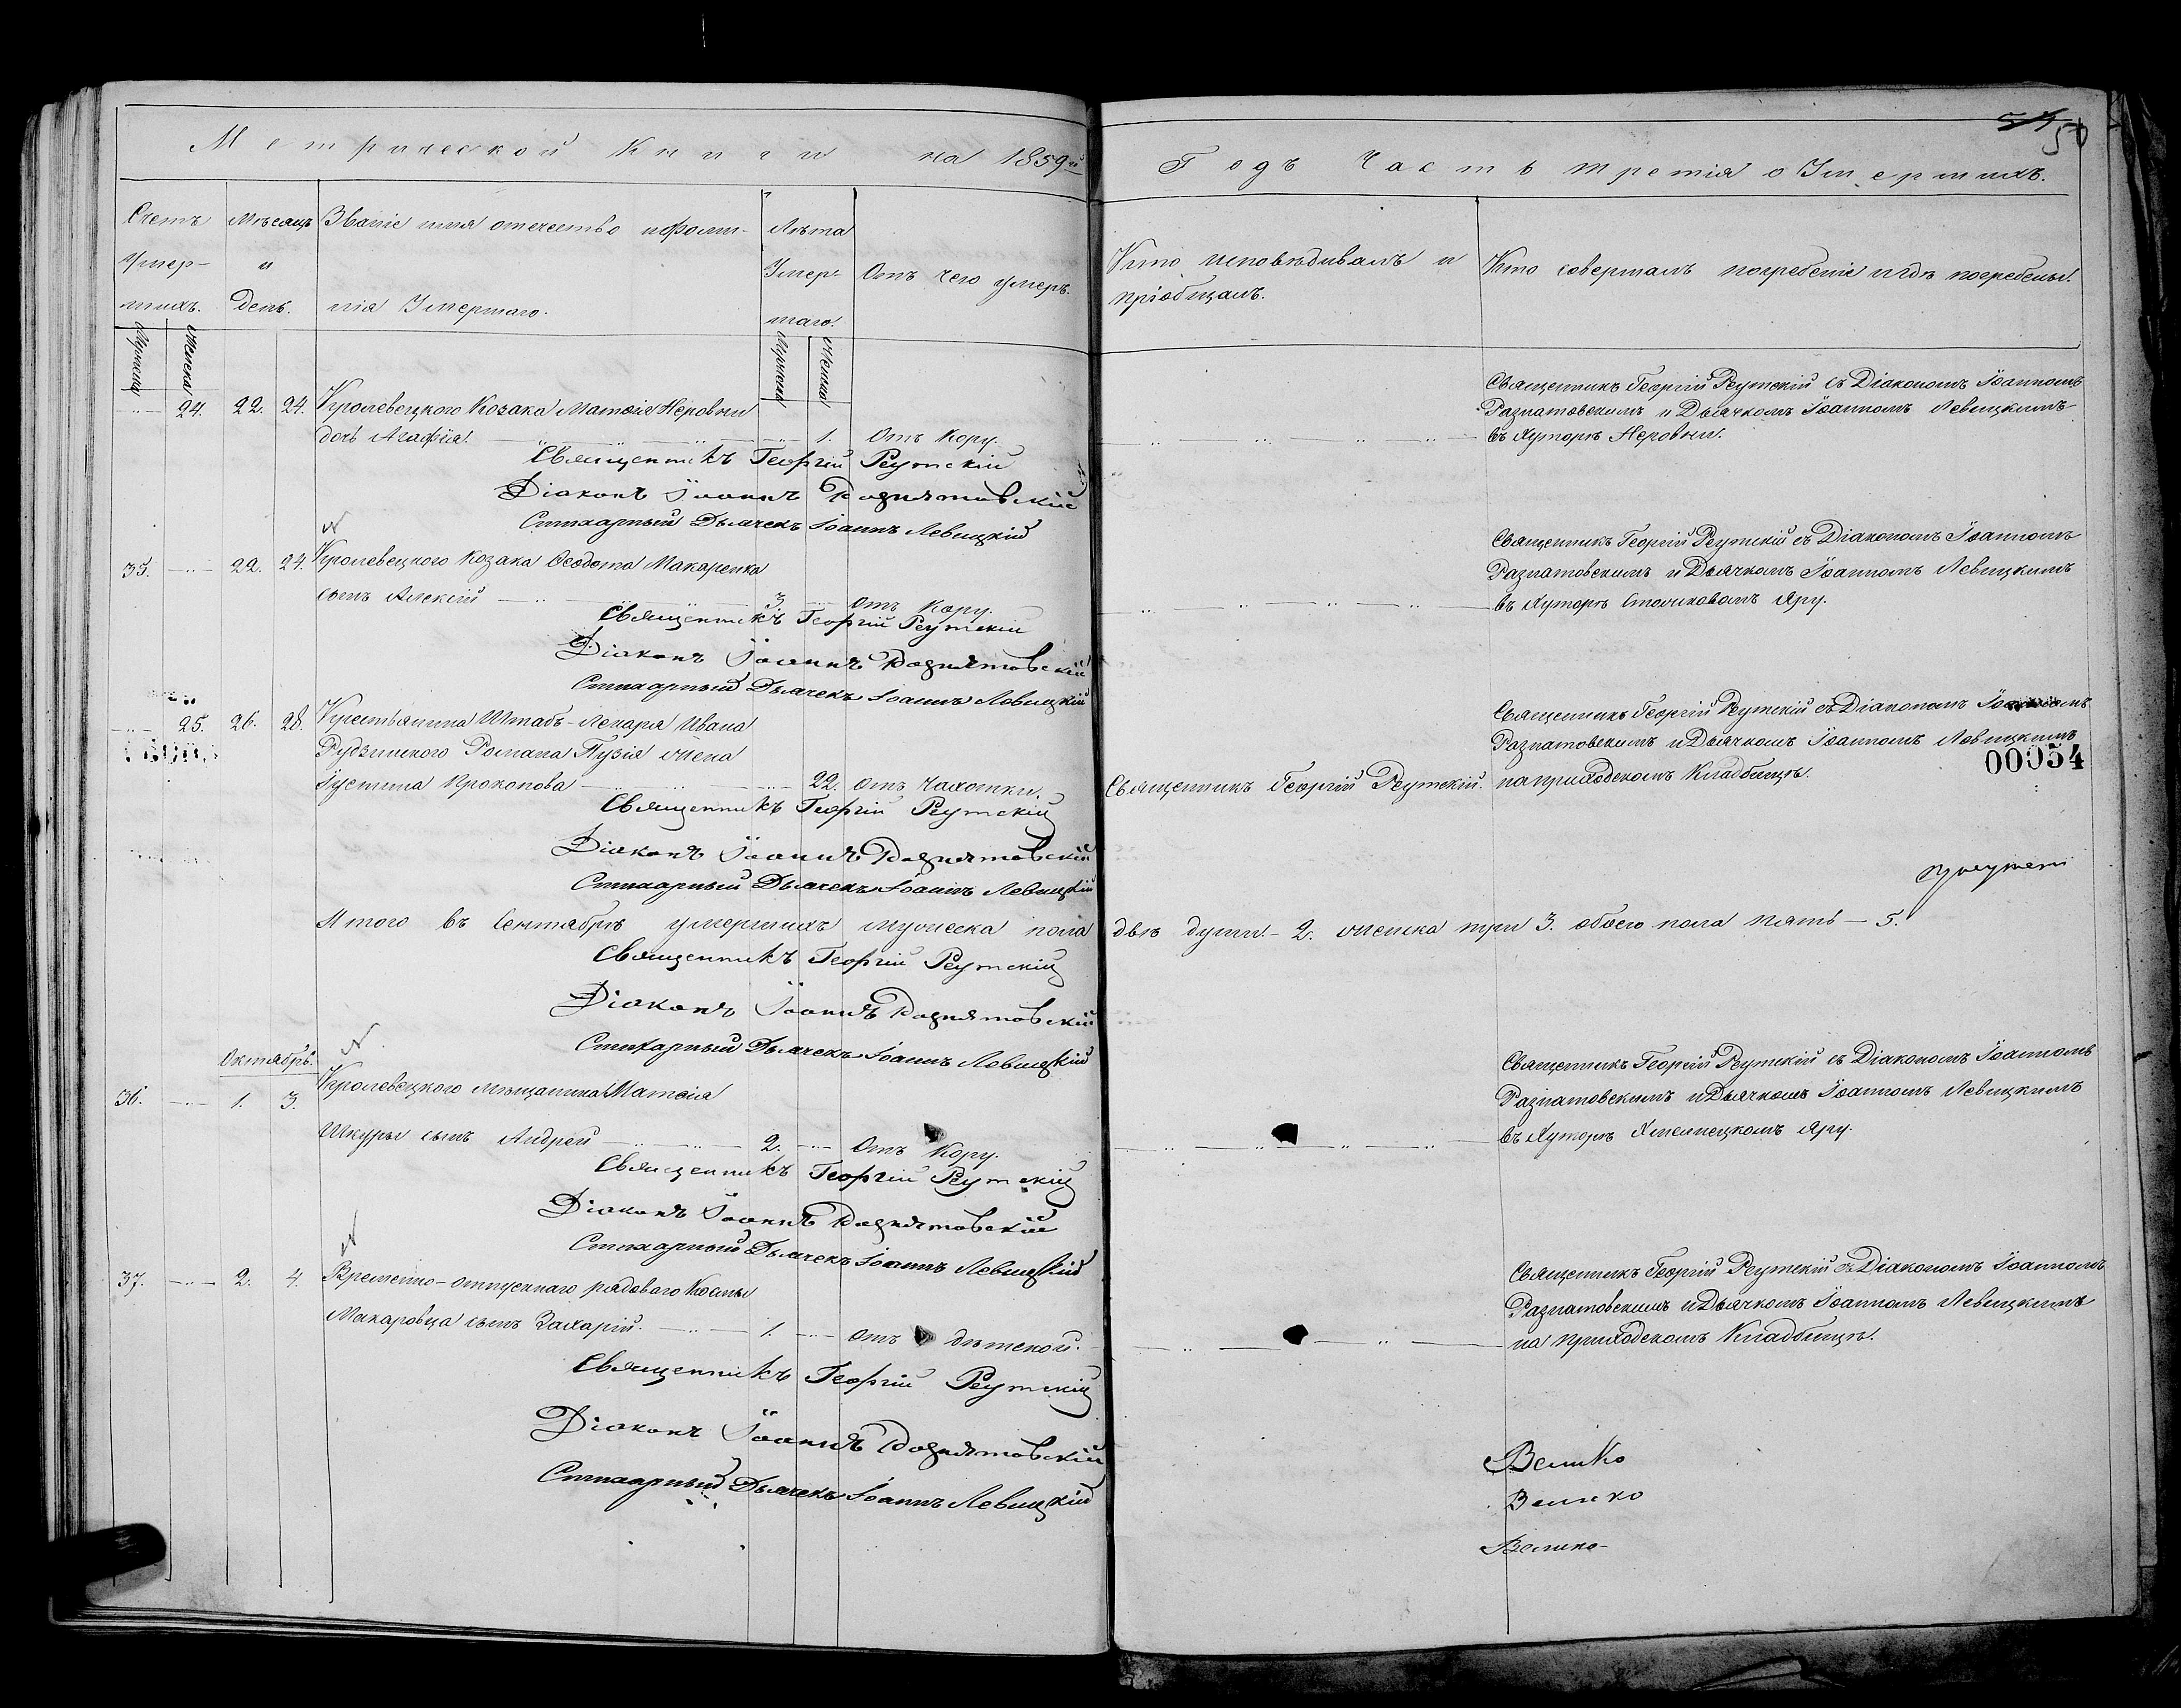 Метрической Книги на 1859й
Счетъ Умер-шихъ.
Мужеска
Женска
Мѣсяцъ и день.
Званіе имя отечество и фами-
лія Умершаго.
Лѣта Умер-шаго.
Мужеска
Женска
Отъ чего умеръ.
24. 22. 24. Кролевецкого Козака Матѳія Неровни
дочь Агафія. 1. Отъ Кору.
Священникъ Георгій Реутскій
Діаконъ Іоаннъ Разнатовскій
Стихарный Дьячекъ Іоаннъ Левицкій
35. 22. 24. Кролевецкого Козака Ѳеодота Макаренка
сынъ Алексій 3 отъ Кору.
Священникъ Георгій Реутскій
Діаконъ Іоаннъ Разнатовскій
Стихарный Дьячекъ Іоаннъ Левицкій
25. 26. 28. Крестьянина Штабъ-Лекаря Ивана
Рудзинского Романа Пузія жена
Іустина Прокопова 22. отъ чахотки.
Священникъ Георгій Реутскій
Діаконъ Іоаннъ Разнатовскій
Стихарный Дьячекъ Іоаннъ Левицкій
Итого въ Сентябрѣ умершихъ мужеска пола
Священникъ Георгій Реутскій
Діаконъ Іоаннъ Разнатовскій
Стихарный Дьячекъ Іоаннъ Левицкій
Октябрь.
36. 1. 3. Кролевецкого мѣщанина Матѳія
Шкуры сынъ Андрей 2. Отъ Кору.
Священникъ Георгій Реутскій
Діаконъ Іоаннъ Разнатовскій
Стихарный Дьячекъ Іоаннъ Левицкій
37. 2. 4. Временно-отпускнаго рядового Космы
Макаровца сынъ Захарій. 1. отъ дѣтской.
Священникъ Георгій Реутскій
Діаконъ Іоаннъ Разнатовскій
Стихарный Дьячекъ Іоаннъ Левицкій
50
Годъ Часть третія о Умершихъ.
Кто исповѣдивалъ и
пріобщалъ.
Кто совершалъ погребеніе и гдѣ погребены.
Священникъ Георгій Реутскій съ Діакономъ Іоанномъ
Разнатовскимъ и Дьячкомъ Іоанномъ Левицкимъ
въ Хуторѣ Неровни.
Священникъ Георгій Реутскій съ Діакономъ Іоанномъ
Разнатовскимъ и Дьячкомъ Іоанномъ Левицкимъ
въ Хуторѣ Яру.
Священникъ Георгій Реутскій съ Діакономъ Іоанномъ
Разнатовскимъ и Дьячкомъ Іоанномъ Левицкимъ
00054
Священникъ Георгій Реутскій. на приходскомъ Кладбищѣ.
двѣ души - 2. женска три 3. обоего пола пять - 5.
Священникъ Георгій Реутскій съ Діакономъ Іоанномъ
Разнатовскимъ и Дьячкомъ Іоанномъ Левицкимъ
въ Хуторѣ Яру.
Священникъ Георгій Реутскій съ Діакономъ Іоанномъ
Разнатовскимъ и Дьячкомъ Іоанномъ Левицкимъ
на приходскомъ Кладбищѣ.
Велико
Велико
Велико